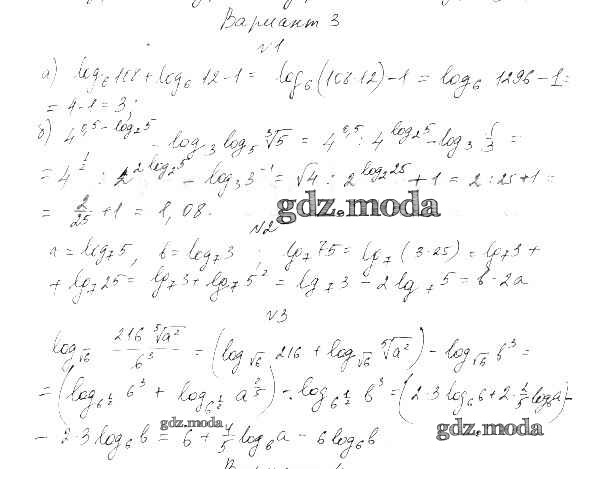 Вариант 3
№1
а) log₆108 + log₆ 12 - 1 = log₆(108·12) - 1 = log₆ 1296 - 1 =
= 4 - 1 = 3;
б) 4^(0,5 - log₂5) - log₃ log₅ ∛5 = 4^(0,5) : 4^(log₂5) - log₃ 1/3 =
= 4^(1/2) : 2^(2 log₂5) - log₃ 3⁻¹ = √4 : 2^(log₂25) + 1 = 2 : 25 + 1 =
= 2/25 + 1 = 1,08.
gdz.moda
№2
a = log₇5, b = log₇3 ; lg₇ 75 = lg₇ (3·25) = lg₇3 +
+ lg₇25 = lg₇3 + lg₇5² = lg₇3 - 2lg₇5 = b - 2a
№3
log_√6 (216 ⁵√a²)/b³ = (log_√6 216 + log_√6 ⁵√a²) - log_√6 b³ =
= (log_6^(1/2) 6³ + log_6^(1/2) a^(2/5)) - log_6^(1/2) b³ = (2·3 log₆6 + 2·2/5 log₆a) -
- 2·3 log₆b = 6 + 4/5 log₆a - 6 log₆b
gdz.moda
gdz.moda